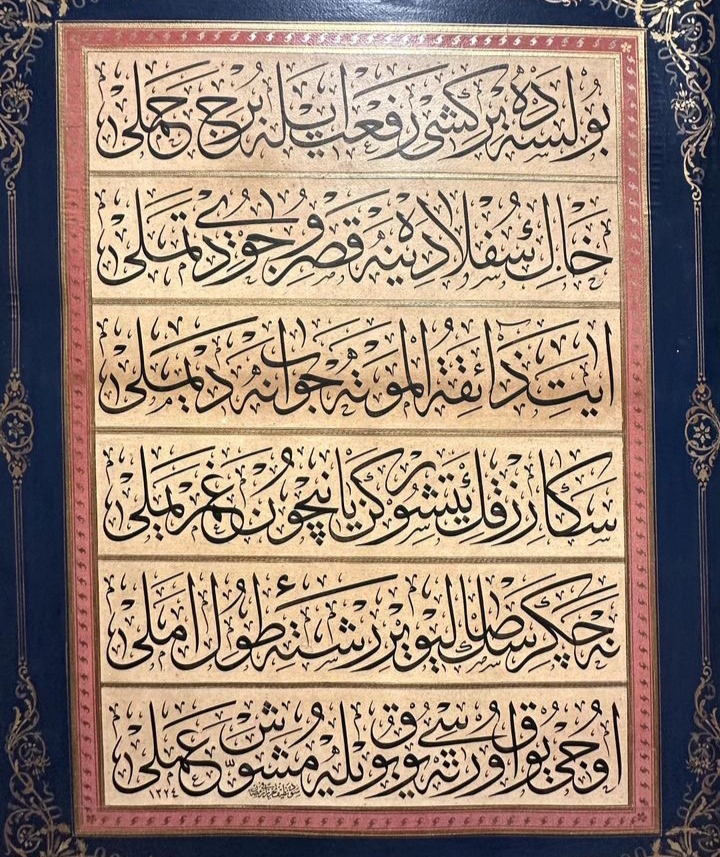 بولسه ده بر كشى رفعت ايله برج حملى
خاك سفلاده ينه قصر وجودى تملى
آيت ذائقة الموته جواب نه ديملى
سكا رزقك يتشوركن يا نيچون غم ييملى
نه چكرسك صاليوير رشتهٔ طول املى
اوجى يوق اورته سى يوق بويله مشوّش عملى
١٣٢٤